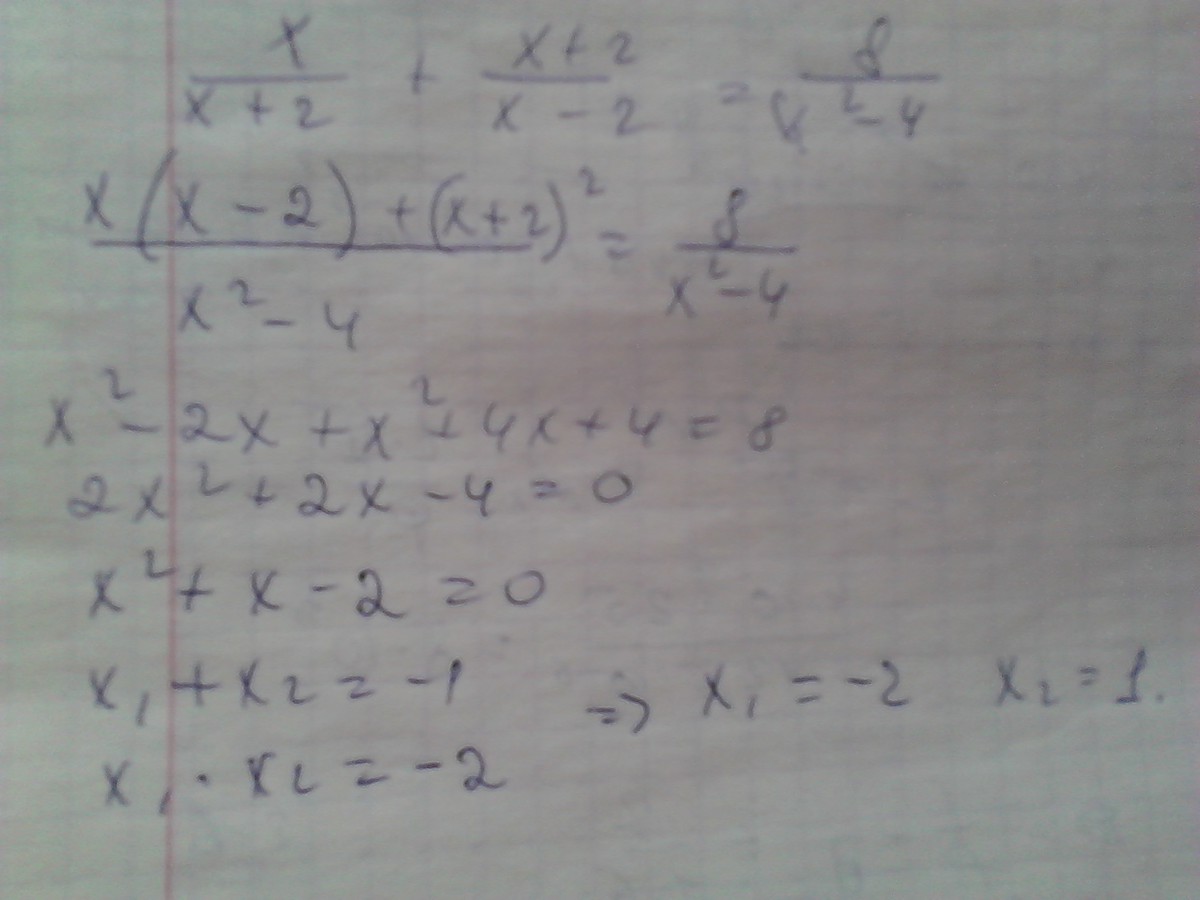 x/(x + 2) + (x + 2)/(x - 2) = 8/(x² - 4)
(x(x - 2) + (x + 2)²)/(x² - 4) = 8/(x² - 4)
x² - 2x + x² + 4x + 4 = 8
2x² + 2x - 4 = 0
x² + x - 2 = 0
x₁ + x₂ = -1 => x₁ = -2 x₂ = 1.
x₁ · x₂ = -2